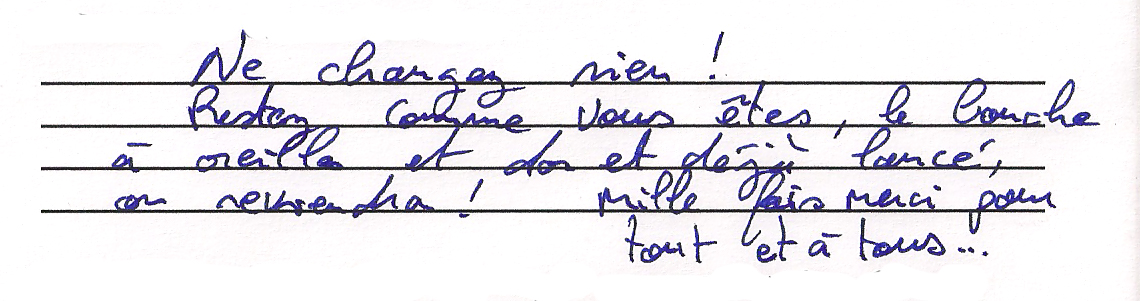 Ne changez rien !
Restez comme vous êtes, le bouche
à oreille et et déjà lancé,
on reviendra ! Mille fois merci pour
tout et à tous...